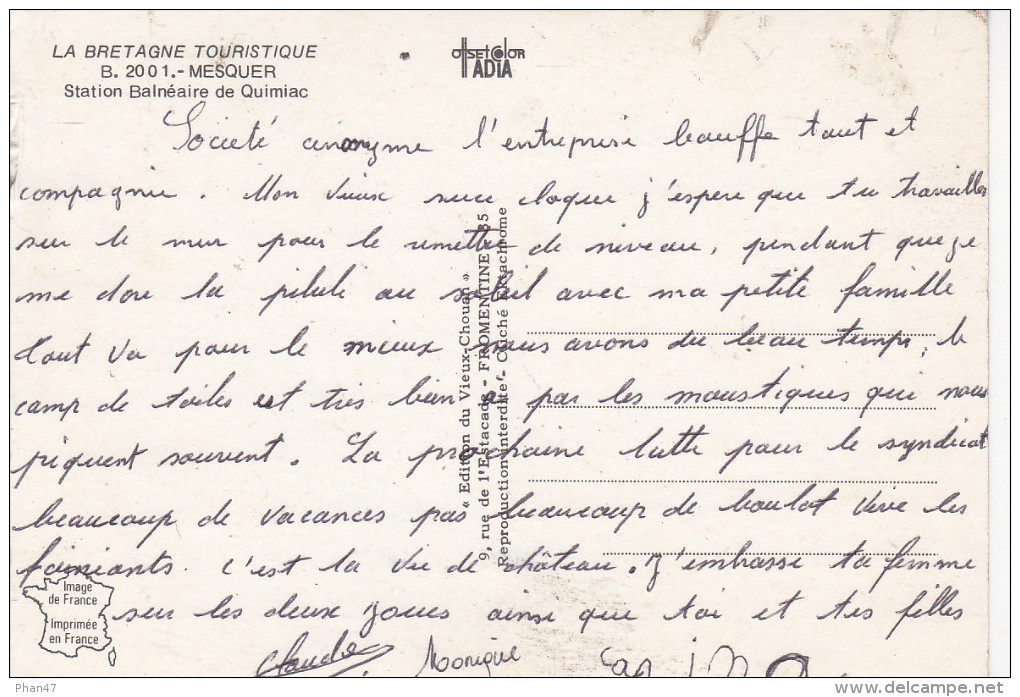 LA BRETAGNE TOURISTIQUE
B. 2001.- MESQUER
Station Balnéaire de Quimiac
OFFSET COLOR
ADIA
Société anonyme l'entreprise bouffe tout et
compagnie. Mon vieux suce loque j'espère que tu travailles
sur le mur pour le remettre de niveau, pendant que je
me dore la pilule au soleil avec ma petite famille
tout va pour le mieux nous avons du beau temps, le
camp de toiles est très bien par les moustiques qui nous
piquent souvent. La prochaine lutte pour le syndicat
beaucoup de vacances pas beaucoup de boulot vive les
fainiants. c'est la vie de château. J'embrasse ta femme
sur les deux joues ainsi que toi et tes filles
Claude Monique
« Edition du Vieux-Chouan »
9, rue de l'Estacade - FROMENTINE - 85
Reproduction interdite - Cliché Ektachrome
Image
de France
Imprimée
en France
Phan47
www.delcampe.net